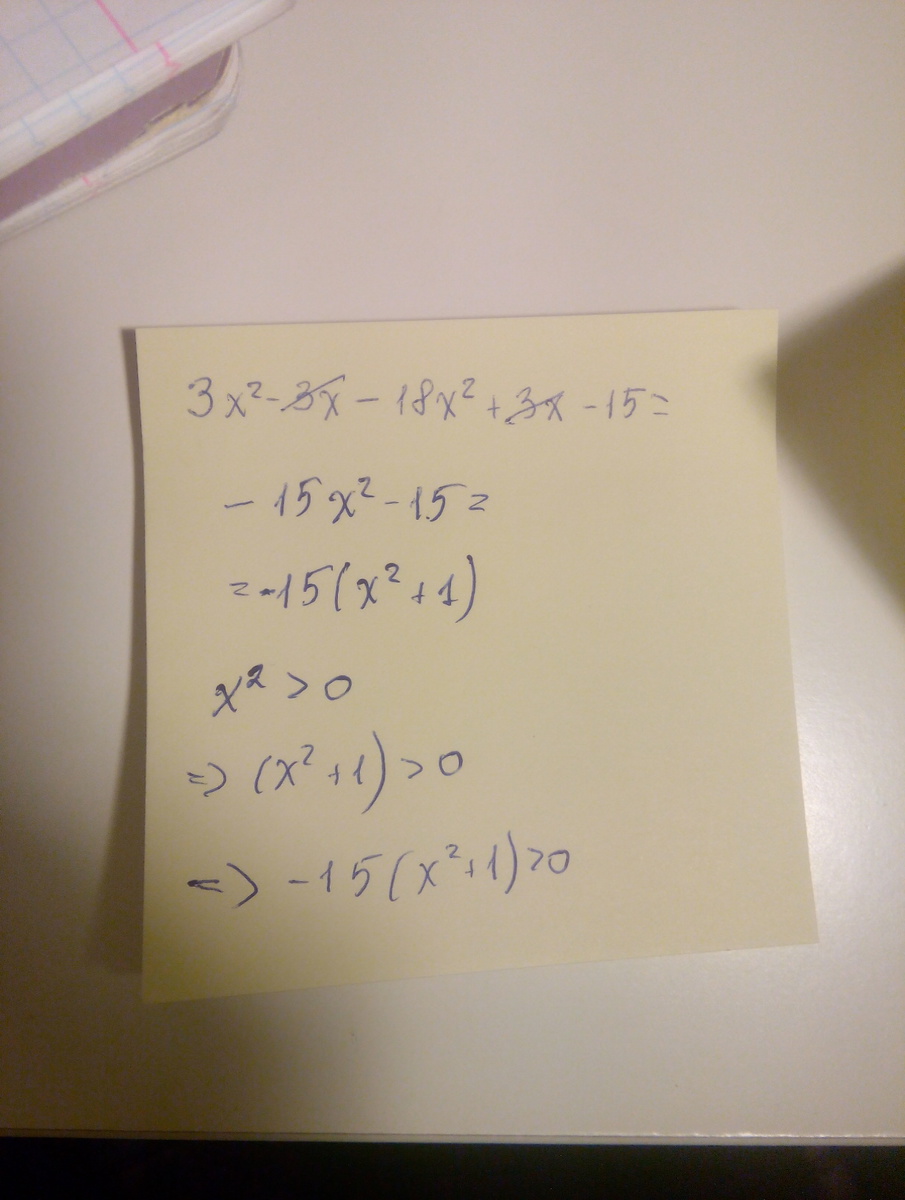 3x² - 3x - 18x² + 3x - 15 =
- 15x² - 15 =
= -15(x² + 1)
x² > 0
=> (x² + 1) > 0
=> -15(x² + 1) > 0